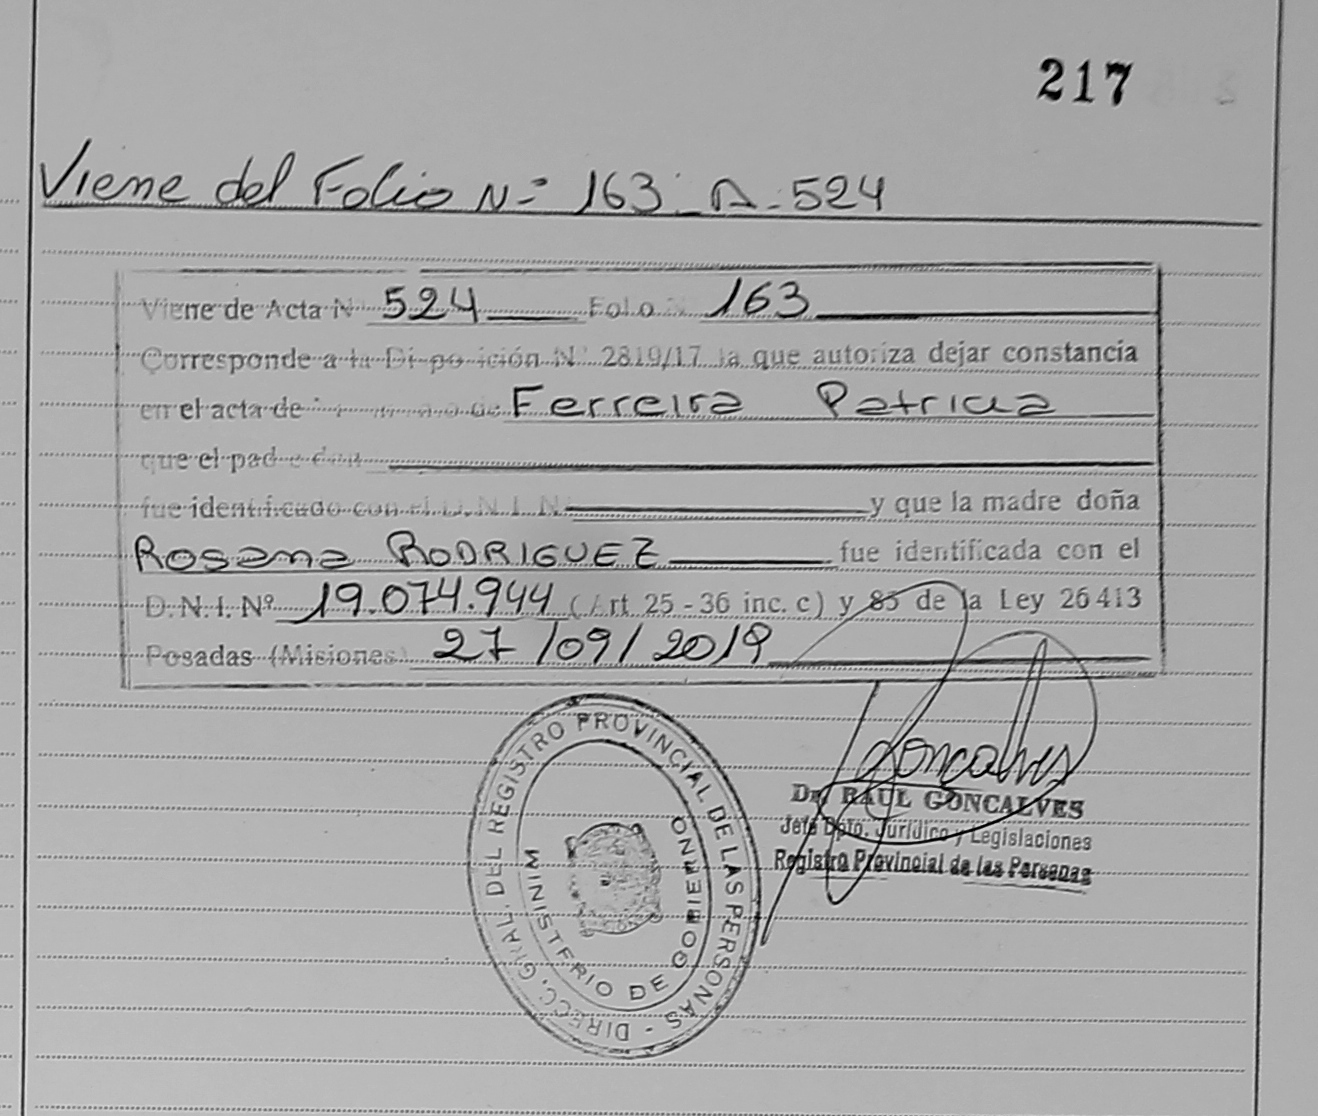 217
Viene del Folio Nº 163 A. 524
Viene de Acta Nº 524 Folio Nº 163
Corresponde a la Disposición Nº 2819/17 la que autoriza dejar constancia
en el acta de Ferreira Patricia
que el padre don
fue identificado con el D.N.I. Nº y que la madre doña
Rosana RODRIGUEZ fue identificada con el
D.N.I. Nº 19.074.944 (Art 25 - 36 inc. c) y 85 de la Ley 26413
Posadas (Misiones) 27/09/2019
Goncalves
Dr. RAUL GONCALVES
Jefe Dpto. Jurídico y Legislaciones
Registro Provincial de las Personas
DIRECC. GRAL. DEL REGISTRO PROVINCIAL DE LAS PERSONAS -
MINISTERIO DE GOBIERNO